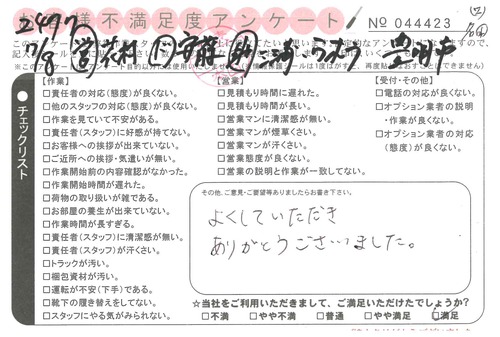 お客様不満足度アンケート
No 044423
2497
チェックリスト
【作業】
□責任者の対応(態度)が良くない。
□他のスタッフの対応(態度)が良くない。
□作業を見ていて不安がある。
□責任者(スタッフ)に好感が持てない。
□お客様への挨拶が出来ていない。
□ご近所への挨拶・気遣いが無い。
□作業開始前の内容確認がなかった。
□作業開始時間が遅れた。
□荷物の取り扱いが雑である。
□お部屋の養生が出来ていない。
□作業時間が長すぎる。
□責任者(スタッフ)に清潔感が無い。
□責任者(スタッフ)が汗くさい。
□トラックが汚い。
□梱包資材が汚い。
□運転が不安(下手)である。
□靴下の履き替えをしてない。
□スタッフにやる気がみられない。
【営業】
□見積もり時間に遅れた。
□見積もり時間が長い。
□営業マンに清潔感が無い。
□営業マンが煙草くさい。
□営業マンが汗くさい。
□営業態度が良くない。
□営業の説明と作業が一致してない。
【受付・その他】
□電話の対応が良くない。
□オプション業者の説明
・作業が良くない。
□オプション業者の対応
(態度)が良くない。
その他、ご意見・ご要望等ありましたらお書き下さい。
よくしていただき
ありがとうございました。
☆当社をご利用いただきまして、ご満足いただけたでしょうか?
□不満 □やや不満 □普通 □やや満足 □満足